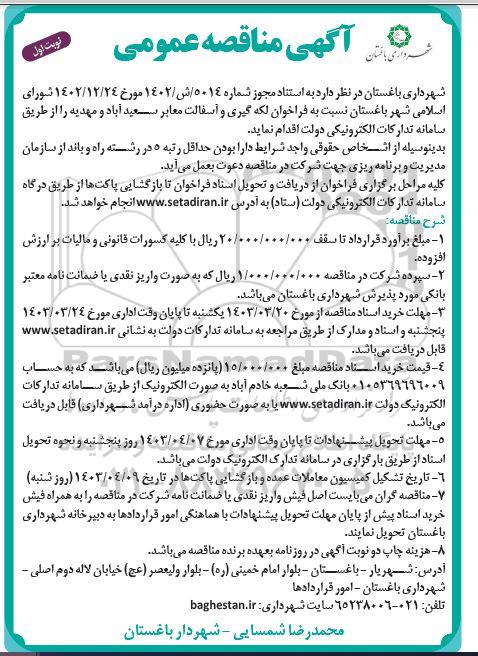 شهرداری باغستان
آگهی مناقصه عمومی
نوبت اول
شهرداری باغستان در نظر دارد به استناد مجوز شماره ۵۰۱۴/ش/۱۴۰۲ مورخ ۱۴۰۲/۱۲/۲۴ شورای
اسلامی شهر باغستان نسبت به فراخوان لکه گیری و آسفالت معابر سعید آباد و مهدیه را از طریق
سامانه تدارکات الکترونیکی دولت اقدام نماید.
بدینوسیله از اشخاص حقوقی واجد شرایط دارا بودن حداقل رتبه ۵ در رشته راه و باند از سازمان
مدیریت و برنامه ریزی جهت شرکت در مناقصه دعوت بعمل می‌آید.
کلیه مراحل برگزاری فراخوان از دریافت و تحویل اسناد فراخوان تا بازگشایی پاکت‌ها از طریق درگاه
سامانه تدارکات الکترونیکی دولت (ستاد) به آدرس www.setadiran.ir انجام خواهد شد.
شرح مناقصه:
۱- مبلغ برآورد قرارداد تا سقف ۲۰/۰۰۰/۰۰۰/۰۰۰ ریال با کلیه کسورات قانونی و مالیات بر ارزش
افزوده.
۲- سپرده شرکت در مناقصه ۱/۰۰۰/۰۰۰/۰۰۰ ریال که به صورت واریز نقدی یا ضمانت نامه معتبر
بانکی مورد پذیرش شهرداری باغستان می‌باشد.
۳- مهلت خرید اسناد مناقصه از مورخ ۱۴۰۳/۰۳/۲۰ یکشنبه تا پایان وقت اداری مورخ ۱۴۰۳/۰۳/۲۴
پنجشنبه و اسناد و مدارک از طریق مراجعه به سامانه تدارکات دولت به نشانی www.setadiran.ir
قابل دریافت می‌باشد.
۴- قیمت خرید اسناد مناقصه مبلغ ۱۵/۰۰۰/۰۰۰ (پانزده میلیون ریال) می‌باشد که به حساب
۰۱۰۵۳۶۹۶۹۶۰۰۹ بانک ملی شعبه خادم آباد به صورت الکترونیک از طریق سامانه تدارکات
الکترونیک دولت www.setadiran.ir یا به صورت حضوری (اداره درآمد شهرداری) قابل دریافت
می‌باشد.
۵- مهلت تحویل پیشنهادات تا پایان وقت اداری مورخ ۱۴۰۳/۰۴/۰۷ روز پنجشنبه و نحوه تحویل
اسناد از طریق بارگزاری در سامانه تدارک الکترونیک دولت می‌باشد.
۶- تاریخ تشکیل کمیسیون معاملات عمده و بازگشایی پاکت‌ها در تاریخ ۱۴۰۳/۰۴/۰۹ (روز شنبه)
۷- مناقصه گران می‌بایست اصل فیش واریز نقدی یا ضمانت نامه شرکت در مناقصه را به همراه فیش
خرید اسناد پیش از پایان مهلت تحویل پیشنهادات با هماهنگی امور قراردادها به دبیرخانه شهرداری
باغستان تحویل نمایند.
۸- هزینه چاپ دو نوبت آگهی در روزنامه بعهده برنده مناقصه می‌باشد.
آدرس: شهریار - باغستان - بلوار امام خمینی (ره) - بلوار ولیعصر (عج) خیابان لاله دوم اصلی -
شهرداری باغستان - امور قراردادها
تلفن: ۰۲۱-۶۵۲۳۸۰۰۶ سایت شهرداری: baghestan.ir
محمدرضا شمسایی - شهردار باغستان